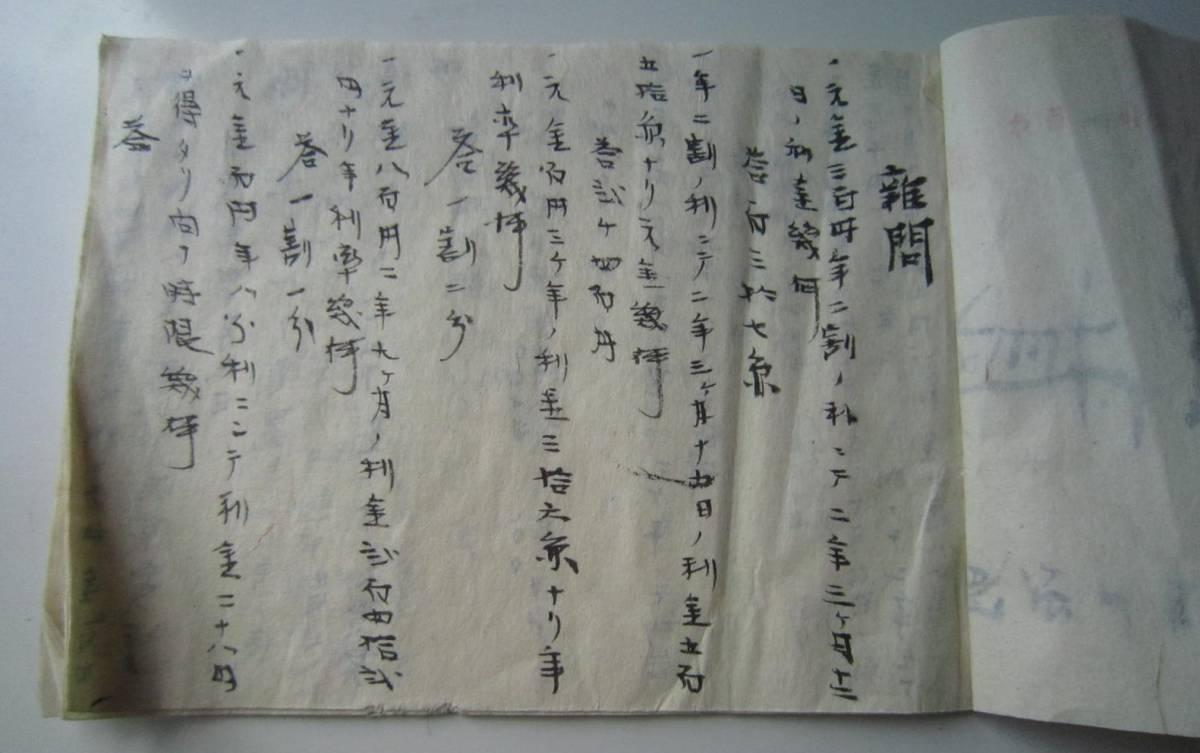 難問
一元金三百円年二割ノ利ニテ二年三ヶ月十二
日ノ利金幾何
答百三拾七円
一年二割ノ利ニテ二年三ヶ月十五日ノ利金五百
五拾円ナリ元金幾何
答
一元金百円三ヶ年ノ利金三拾六円ナリ年
利率幾何
答一割二分
一元金八百円二年九ヶ月ノ利金弐百四拾弐
円ナリ年利率幾何
答一割一分
一元金百円年八分利ニシテ利金二十八円
ヲ得タリ向フ時限幾何
答